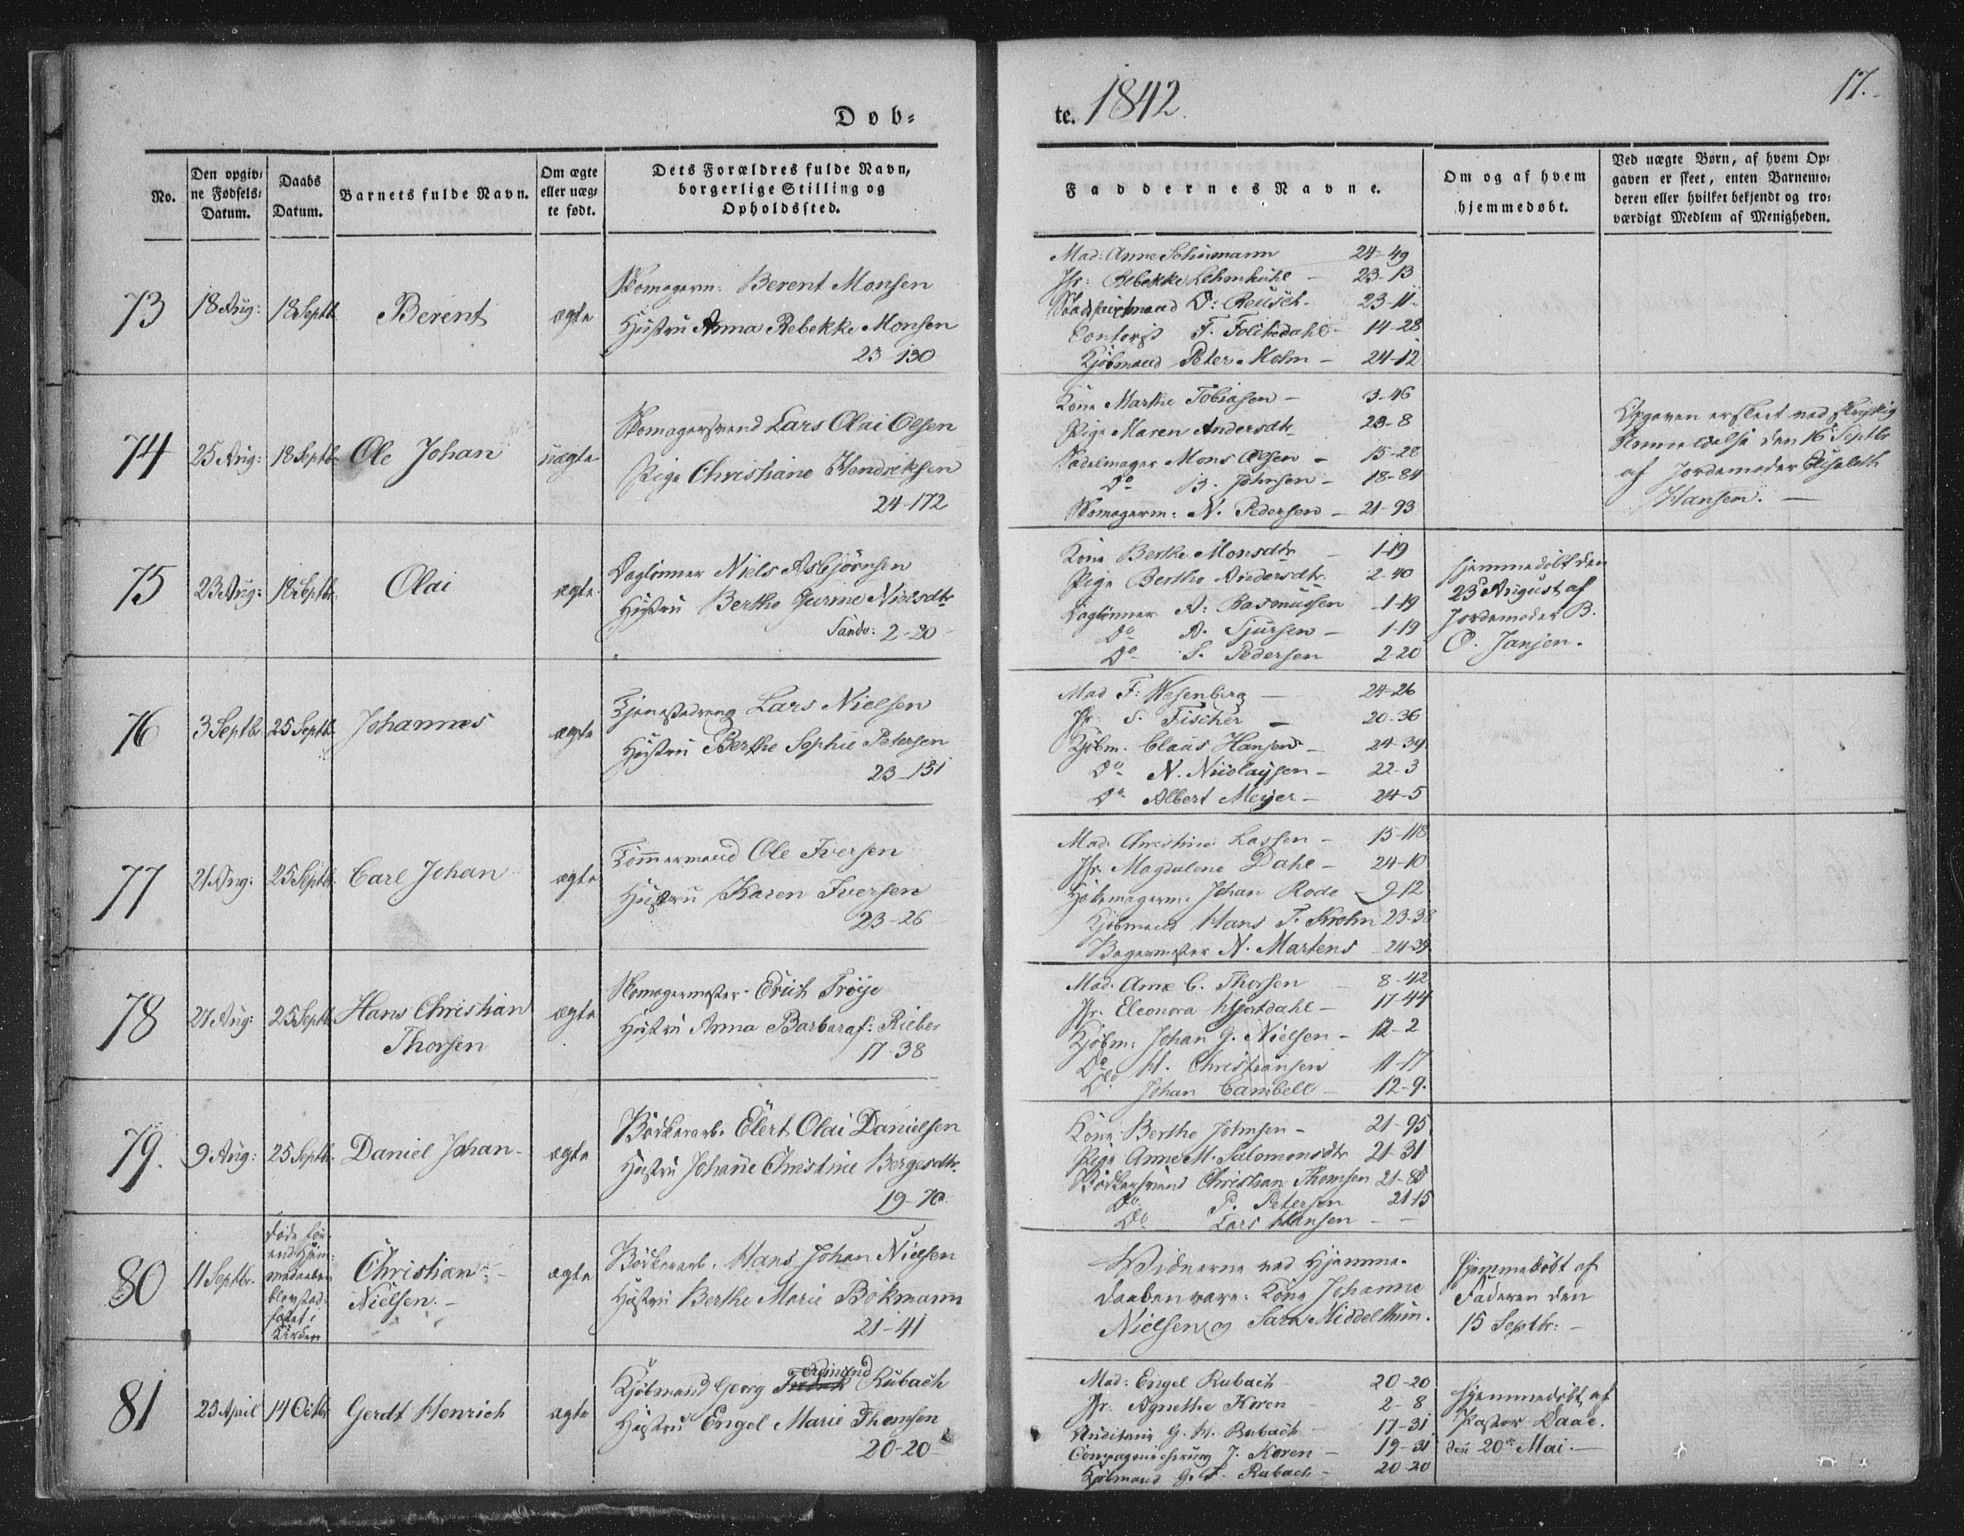 Dob-
No.
Den opgiv-
ne Fødsels-
Datum.
Daabs
Datum.
Barnets fulde Navn.
Om ægte
eller uæg-
te født.
Dets Forældres fulde Navn,
borgerlige Stilling og
Opholdssted.
73 18 Aug: 18 Septb Berent ægte
Skomagerm: Berent Monsen
Hustru Anna Rebekke Monsen
23-130
74 25 Aug: 18 Septb Ole Johan uægte
Skomagersvend Lars Olai Olsen
Pige Christiane Hendriksen
24-172
75 23 Aug: 18 Septbr. Olai ægte
Daglönner Niels Asbjörnsen
Hustru Berthe Gurine Nielsdtr
Sandv: 2-20
76 3 Septbr 25 Septb. Johannes ægte
Tjenestedreng Lars Nielsen
Hustru Berthe Sophie Petersen
23-131
77 21 Aug: 25 Septb. Carl Johan ægte
Tömmermand Ole Iversen
Hustru Karen Iversen
23-26
78 27 Aug: 25 Septb. Hans Christian
Thorsen
ægte
Skomagermester Erich Tröye
Hustru Anna Barbara f: Rieber
17-38
79. 9 Aug: 25 Septb. Daniel Johan ægte
Bödkerarb. Elert Olai Danielsen
Hustru Johane Christine Børgesdtr.
19-70
80 11 Septbr.
Döde för
end Hjem-
medaaben
blev stad-
fæstet i
Kirken
Christian
Nielsen.
ægte
Bödkerarb. Hans Johan Nielsen
Hustru Berthe Marie Bökmann
21-41
81 23 April 14 Octbr Gerdt Henrich ægte
Kjöbmand Georg Ferdinand Rubach
Hustru Engel Marie Thomsen
20-20
te. 1842.
17.
Faddernes Navne.
Om og af hvem
hjemmedøbt.
Ved uægte Børn, af hvem Op-
gaven er skeet, enten Barnemo-
deren eller hvilket bekjendt og tro-
værdigt Medlem af Menigheden.
Mad: Anne Schumann 24-49
Jfr: Rebekke Lehmkuhl 23-13
D: Reusch 23-11
Contorist F. Folkedahl 14-28
Kjöbmand Peter Mohn 24-12
Kone Marthe Tobiasen 3-46
Pige Maren Andersdtr 23-8
Sadelmager Mons Olsen 15-28
Do B. Johnsen 18-84
Skomagerm: N. Pedersen 21-93
Opgaven er skeet ved skriftlig
Anmeldelse den 16 Septbr
af Jordemoder Elisabeth
Hansen.
Kone Berthe Monsdtr 1-19
Pige Berthe Andersdtr 2-40
Daglönner A. Rasmussen 1-19
Do A. Sjursen 1-19
Do S. Pedersen 2-20
Hjemmedöbt den
23 August af
Jordemoder B.
O. Jansen.
Mad F: Wesenberg 24-26
Jfr. S. Fischer 20-36
Kjöbm. Claus Hansen 24-39
Do N. Nicolaysen 22-3
Do Albert Meyer 24-5
Mad. Christine Lassen 15-118
Jfr. Magdalene Dahl 24-10
Johan Rode 9-12
Kjöbmand Hans T. Krohn 23-38
Bagermester N. Martens 24-39
Mad. Anne C. Thorsen 8-42
Jfr. Eleonora Hjortdahl 17-44
Kjöbm: Johan G. Nielsen 12-2
Do H. Christiansen 11-17
Do Johan Cambell 12-9.
Kone Berthe Johnsen 21-95
Pige Anne M. Salomonsdtr 21-31
Bödkersvend Christian Thomsen 21-85
Do P. Petersen 21-15
Do Lars Hansen
Vidnerne ved Hjemme-
daaben vare: Kone Johanne
Nielsen og Sara Middelthun.
Hjemmedöbt af
Faderen den
15 Septbr:
Mad: Engel Rubach 20-20
Jfr. Agnethe Koren 2-8
Auditeur G. H. Rubach 17-31
J. Koren 19-31
Kjöbmand G. F. Rubach 20-20
Hjemmedöbt af
Pastor Daae.
den 20de Mai.